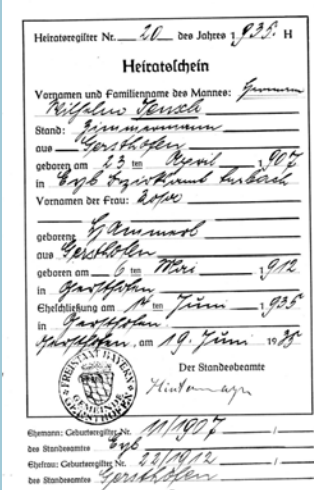 Heiratsregister Nr. 20 des Jahres 1935. H
Heiratsschein
Vornamen und Familienname des Mannes: Hermann
Wilhelm
Stand: Zimmermann
aus Gersthofen
geboren am 23 ten April 1907
in Eyb Bezirksamt
Vornamen der Frau:
geborene Hammerl
aus Gersthofen
geboren am 6 ten Mai 1912
in Gersthofen
Eheschließung am ten Juni 1935
in Gersthofen.
Gersthofen, am 19. Juni 1935
Der Standesbeamte
FREISTAAT BAYERN
GEMEINDE GERSTHOFEN
Ehemann: Geburtsregister Nr. 11/1907
des Standesamtes Eyb
Ehefrau: Geburtsregister Nr. 22/1912
des Standesamtes Gersthofen